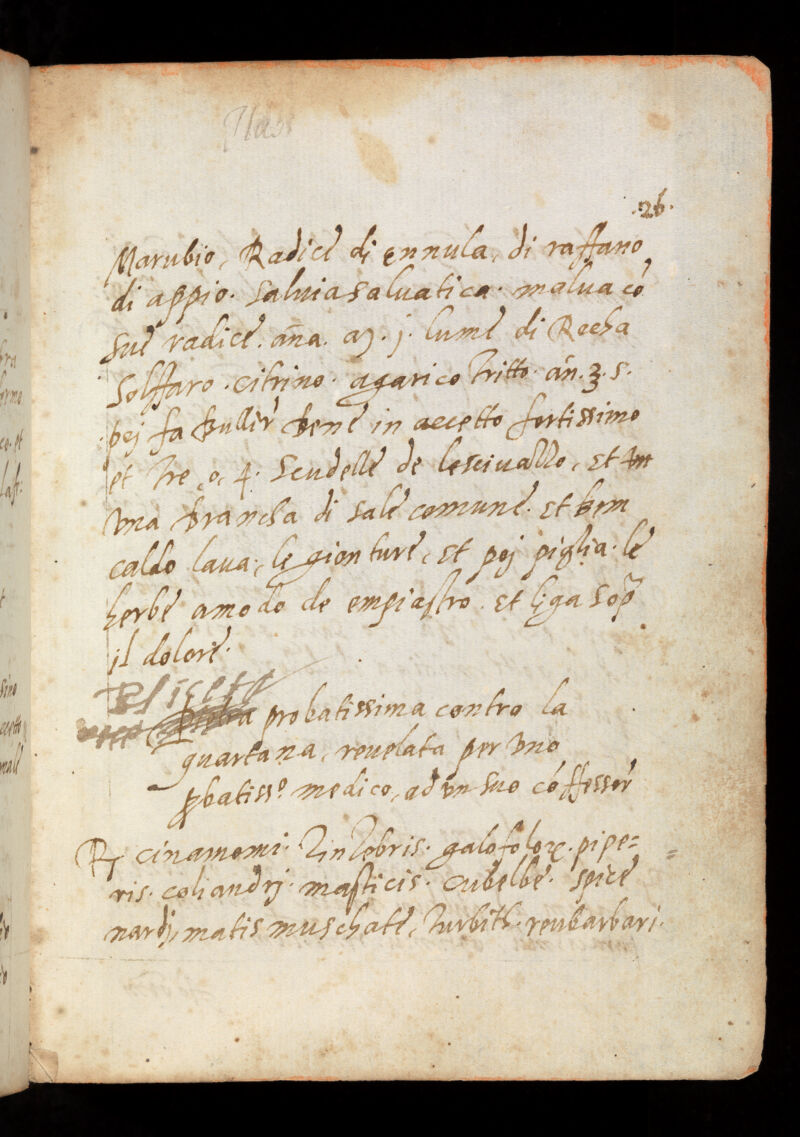 .26.
Marubio, Radice di ennula, di raffano
di appio. Saluia saluatica. malua cō
sue radice. ana. m. j. lume di Rocha
Solffaro. citrino. agarico tritto. an. ʒ. s.
poj fa bullir bene in accetto fortissimo
et tre, o, 4. Scudelle de lesciuazzo, et
vna brancha di sale comune. et ben
caldo laua, le gionture, et poj piglia. le
herbe amodo de empiastro. et liga sop̄
il dolore.
probatissima contro la
quartana, reuelata per vno
ꝓbatiss.º medico, ad vn suo cōffessor
℞ cinamomi. Zinzebris. galofoloꝝ. pipe=
ris. coliandrj. masticis. cubelbe. spice
nardj, matis muschate, turbith. reubarbari.